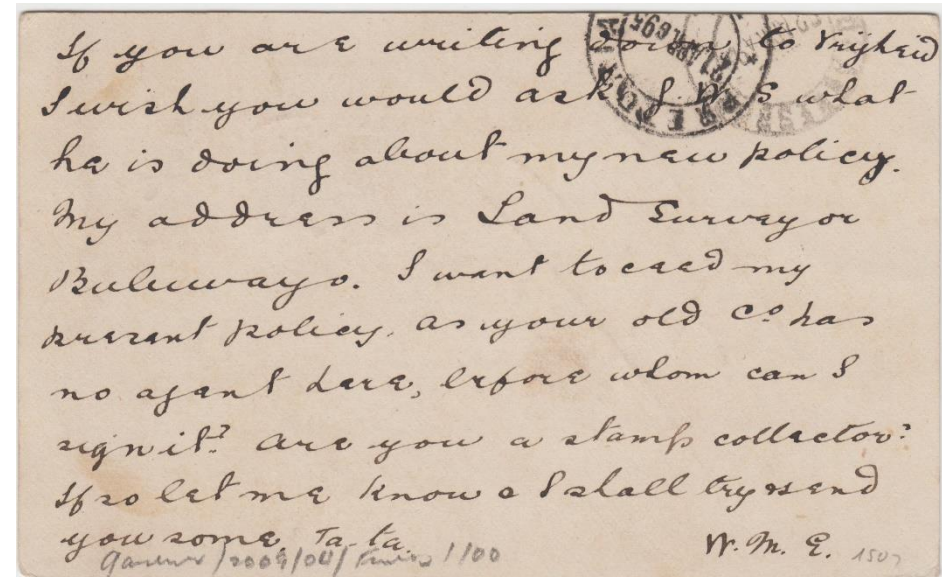 If you are writing down to Vryheid
I wish you would ask J.W.S what
he is doing about my new policy.
My address is Land Surveyor
Buluwayo. I want to ceed my
present policy. As your old Co has
no agent here, before whom can I
sign it? Are you a stamp collector?
If so let me know & I shall try & send
you some Ta-ta.
W. M. E.
PRETORIA
1507